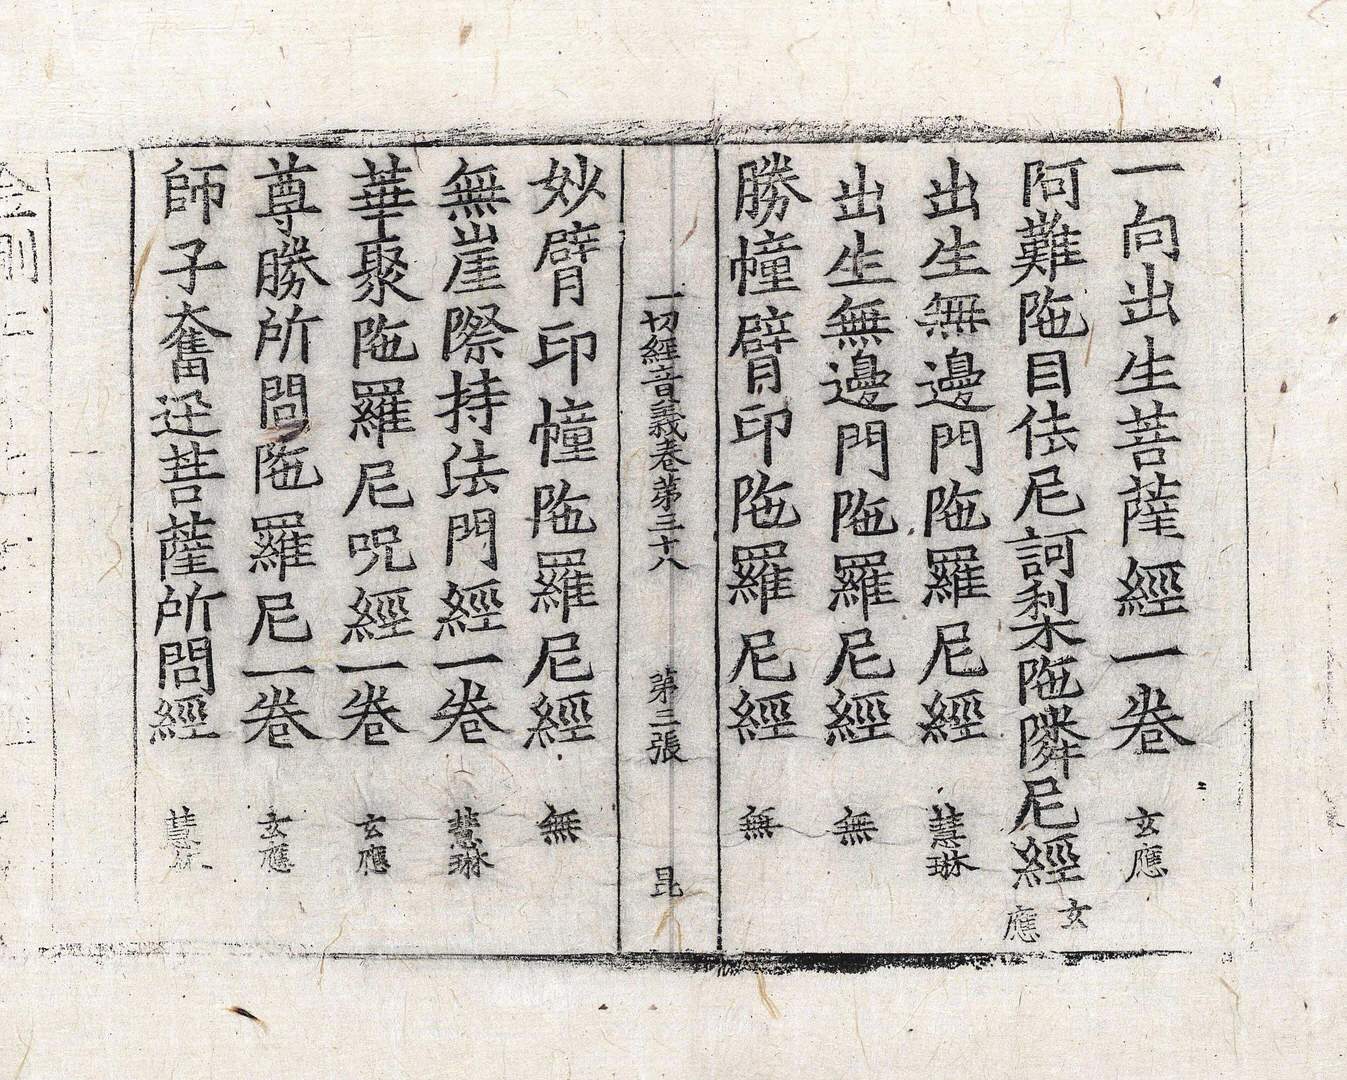 一向出生菩薩經一卷 玄應
阿難陁目佉尼訶梨陁隣尼經 玄應
出生無邊門陁羅尼經 慧琳
出生無邊門陁羅尼經 無
勝幢臂印陁羅尼經 無
一切經音義卷第三十八 第三張 昆
妙臂印幢陁羅尼經 無
無崖際持法門經一卷 慧琳
華聚陁羅尼呪經一卷 玄應
尊勝所問陁羅尼一卷 玄應
師子奮迅菩薩所問經 慧琳